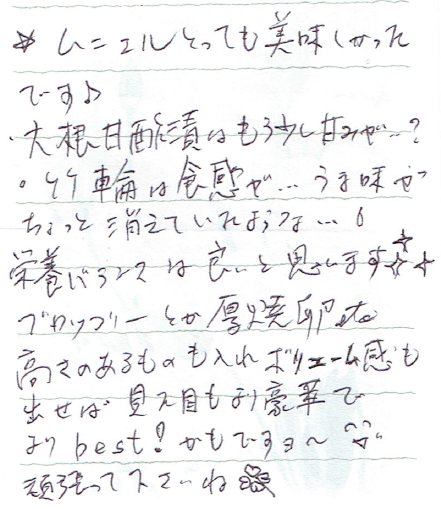 ☆ ムニエルとっても美味しかった
です♪
・大根甘酢漬はもう少し甘みが…?
・竹輪は食感が… うま味が
ちょっと消えていたような…!
栄養バランスは良いと思います☆☆☆
ブロッコリーとか厚焼卵etc
高さのあるものも入れボリューム感も
出せば見た目もより豪華で
より best! かもですヨ〜
頑張って下さいね